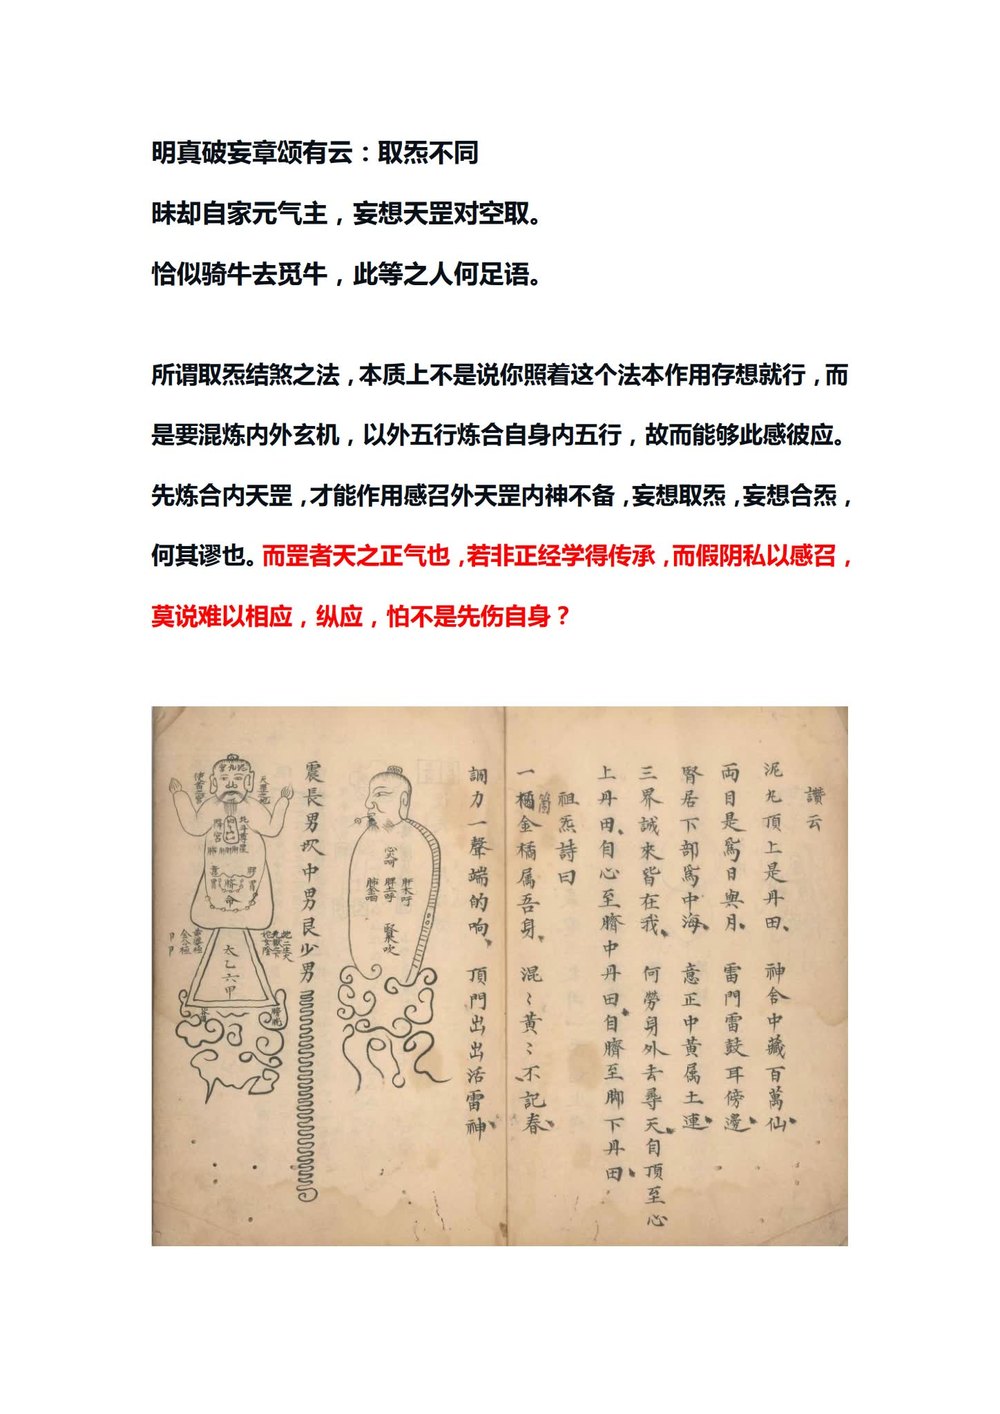 明真破妄章颂有云：取炁不同
昧却自家元气主，妄想天罡对空取。
恰似骑牛去觅牛，此等之人何足语。
所谓取炁结煞之法，本质上不是说你照着这个法本作用存想就行，而
是要混炼内外玄机，以外五行炼合自身内五行，故而能够此感彼应。
先炼合内天罡，才能作用感召外天罡内神不备，妄想取炁，妄想合炁，
何其谬也。而罡者天之正气也，若非正经学得传承，而假阴私以感召，
莫说难以相应，纵应，怕不是先伤自身？
讚云
泥丸頂上是丹田 神舍中藏百萬仙
両目是爲日與月 雷門雷鼓耳傍邊
腎居下部爲中海 意正中黄属土連
三界誠來皆在我 何勞身外去尋天自頂至心
上丹田自心至臍中丹田自臍至脚下丹田
祖炁詩曰
一橘箇金橘属吾身 混〻黄〻不記春
調力一聲端的响 頂門出出活雷神
心呵
肝木呼
脾土呼
肺金呬
腎水吹
震長男坎中男艮少男
泥丸宮
絳宮
臍
命
太乙六甲